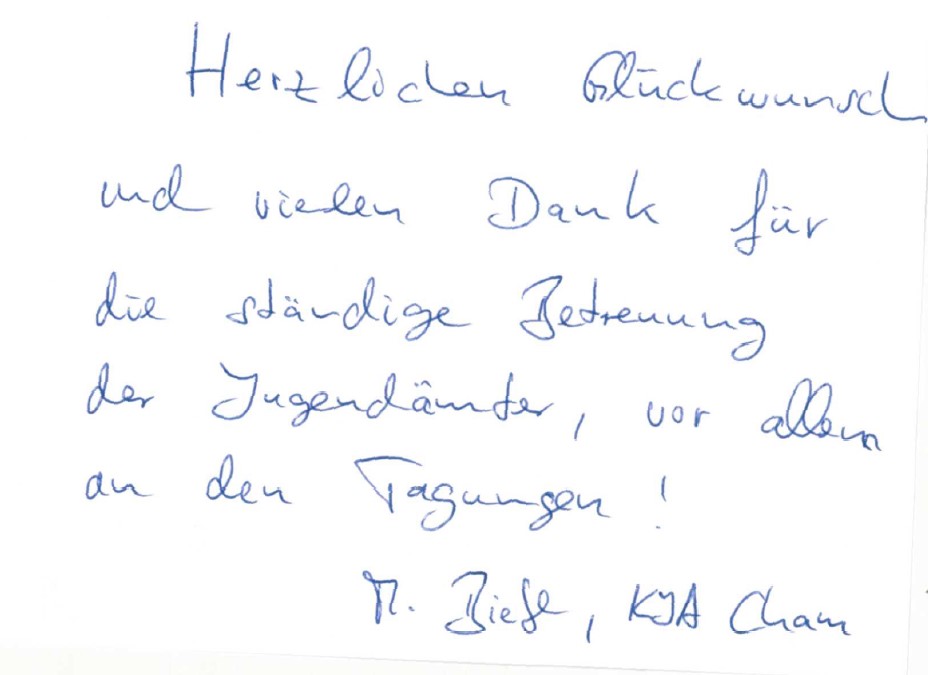 Herzlichen Glückwunsch
und vielen Dank für
die ständige Betreuung
der Jugendämter, vor allem
an den Tagungen!
KJA Cham